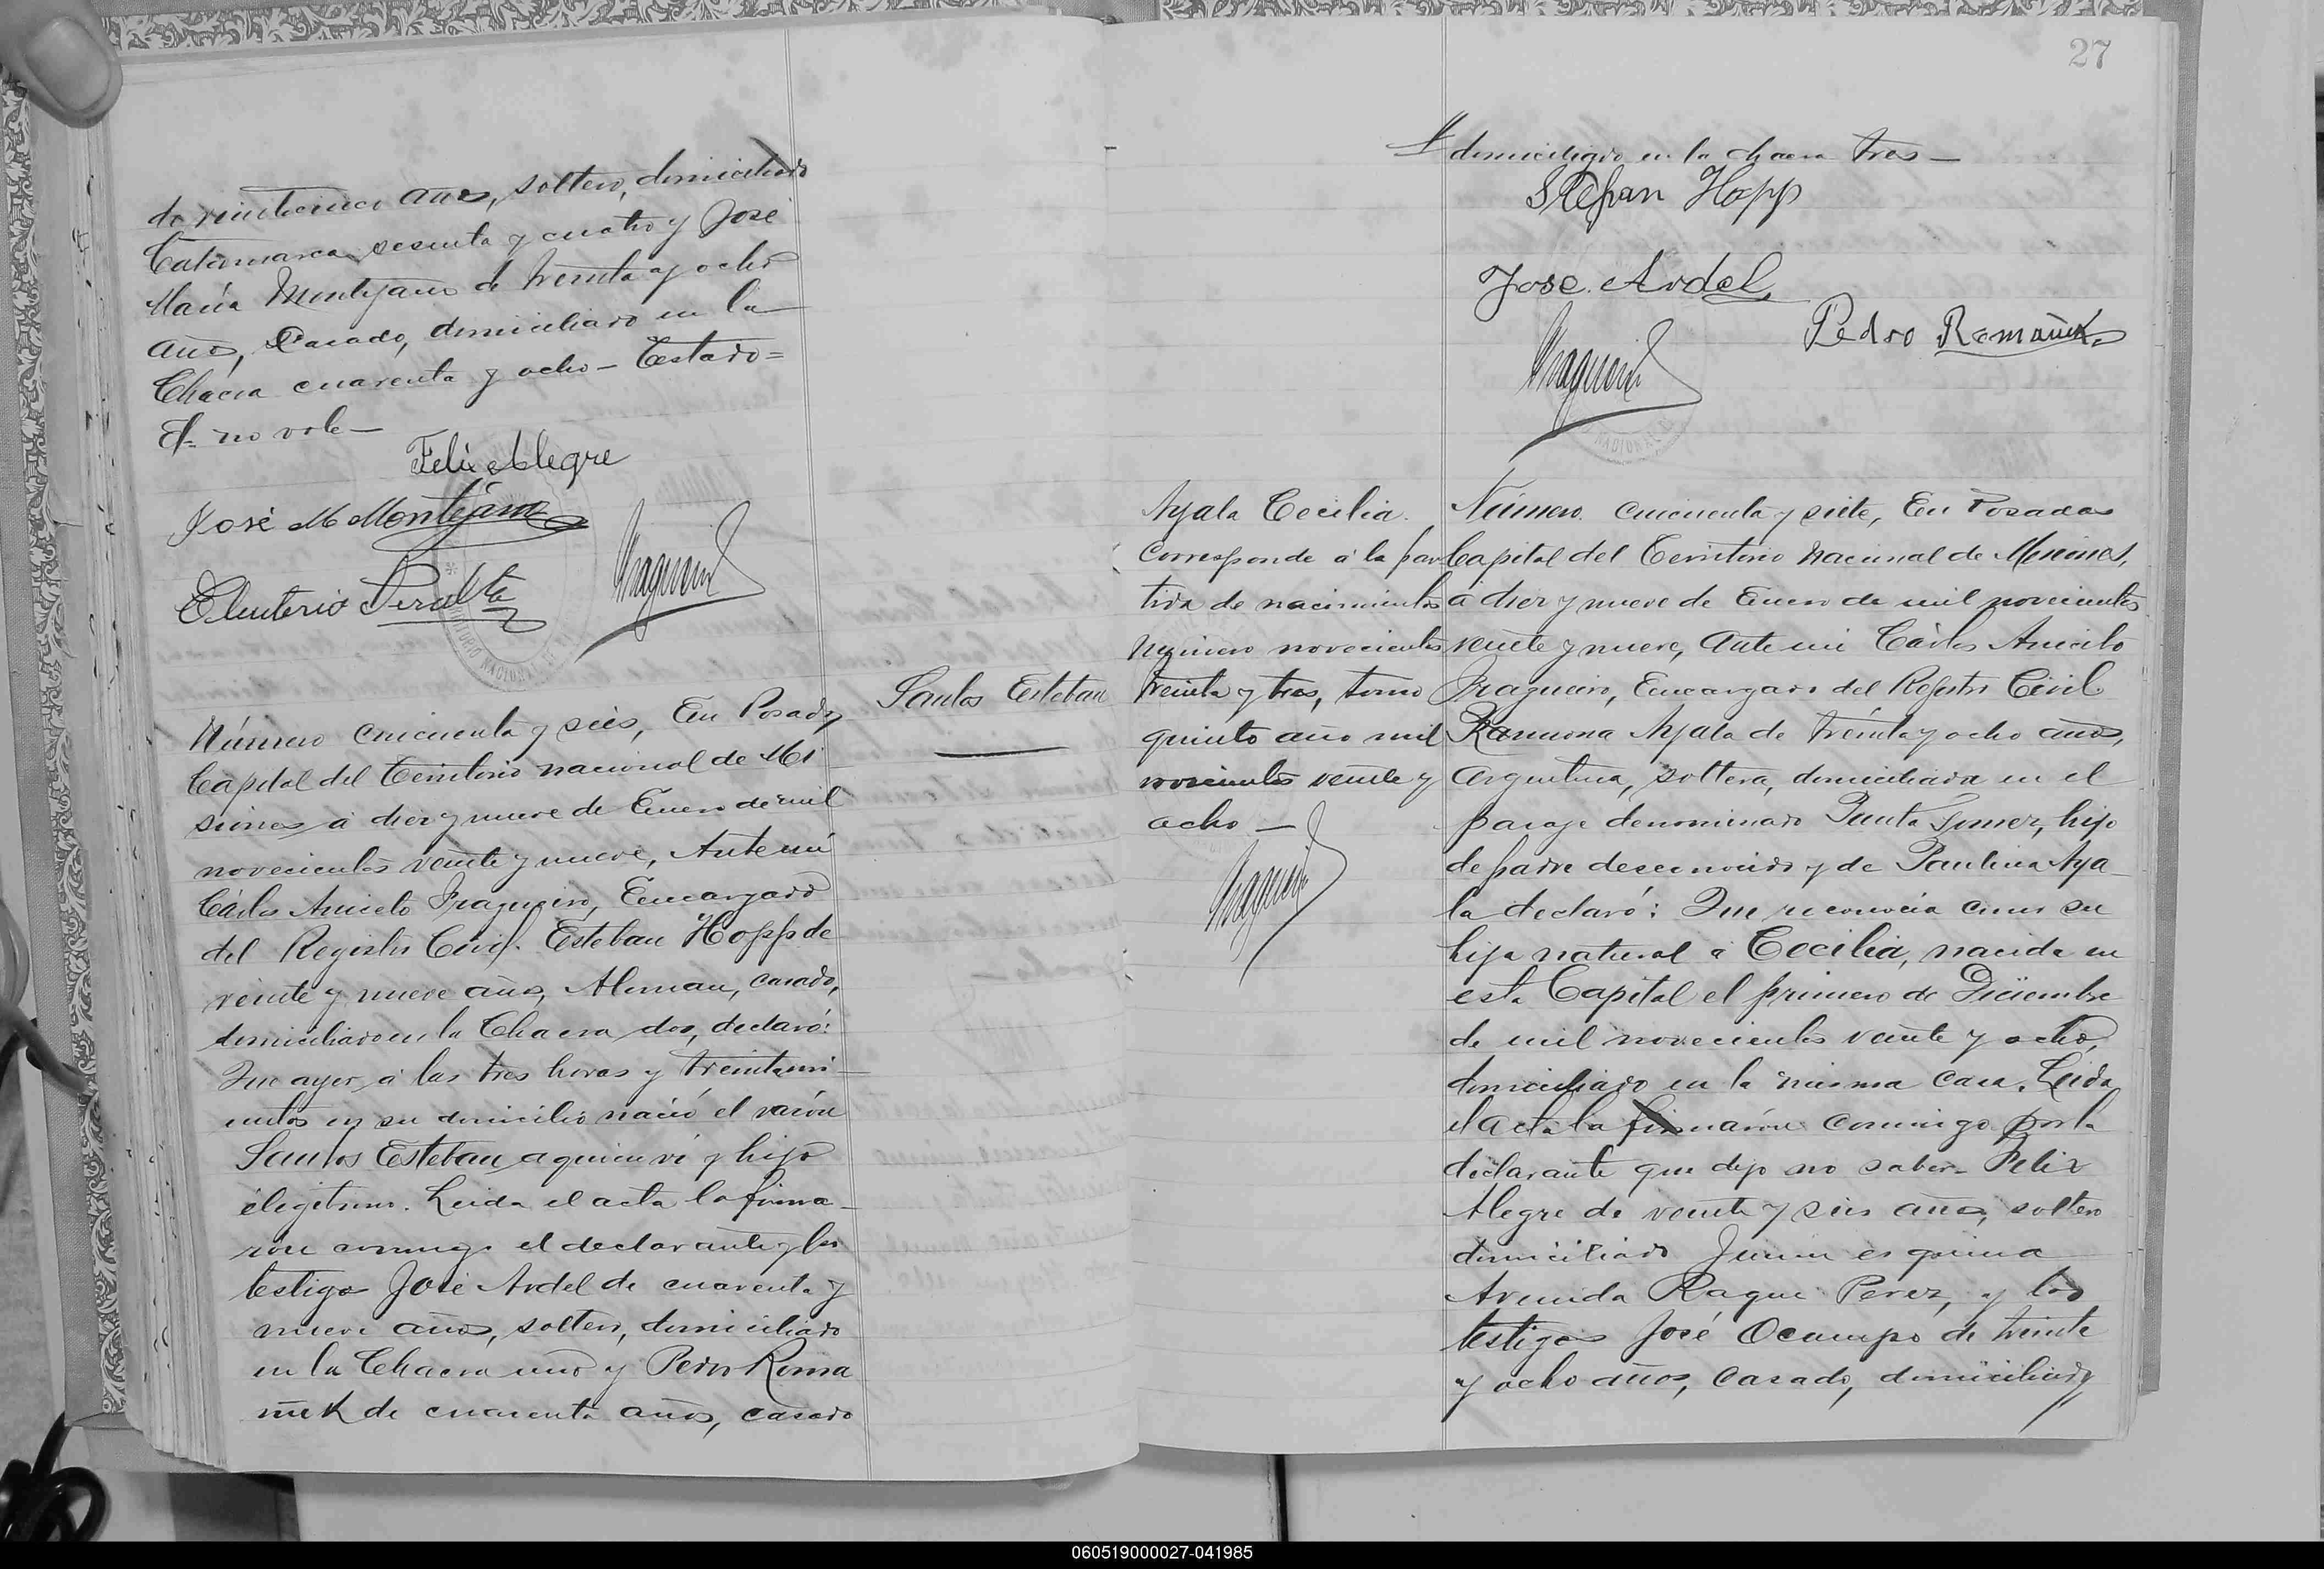 de veinticinco años, soltero, domiciliado
Catamarca sesenta y cuatro y José
María Montejano de treinta y ocho
años, casado, domiciliado en la
Chacra cuarenta y ocho - Testado=
no vale -
Felix Alegre
José M Montejano
Eleuterio Peralta
Santos Esteban
Número cincuenta y seis, En Posadas
Capital del Territorio nacional de Mi
siones á diez y nueve de Enero de mil
novecientos veinte y nueve, Ante mí
Cárlos Aniceto Fragueiro, Encargado
del Registro Civil. Esteban Hopp de
veinte y nueve años, Aleman, casado,
domiciliado en la Chacra dos, declaró:
Que ayer á las tres horas y treinta mi-
nutos en su domicilio nació el varón
Santos Esteban a quien ví y hijo
ilegítimo. Leida el acta la firma-
ron conmigo el declarante y los
testigos José Ardel de cuarenta y
nueve años, soltero, domiciliado
en la Chacra uno y Pedro Roma
ñuk de cuarenta años, casado
27
domiciliado en la chacra tres -
Stefan Hopp
José Ardel
Pedro Romañuk
Ayala Cecilia.
Corresponde á la par
tida de nacimientos
número novecientos
treinta y tres, tomo
quinto año mil
novecientos veinte y
ocho -
Número cincuenta y siete, En Posadas
Capital del Territorio Nacional de Misiones,
á diez y nueve de Enero de mil novecientos
veinte y nueve, Ante mi Cárlos Aniceto
Fragueiro, Encargado del Registro Civil
Ramona Ayala de treinta y ocho años,
Argentina, soltera, domiciliada en el
paraje denominado Santa Ines, hija
de padre desconocido y de Paulina Aya-
la declaró: Que reconocia como su
hija natural á Cecilia, nacida en
esta Capital el primero de Diciembre
de mil novecientos veinte y ocho
domiciliado en la misma casa. Leida
el acta la firmarón conmigo por la
declarante que dijo no saber - Felix
Alegre de veinte y seis años, soltero
domiciliado Junin esquina
Avenida Roque Perez, y los
testigos José Ocampo de treinta
y ocho años, casado, domiciliado
060519000027-041985